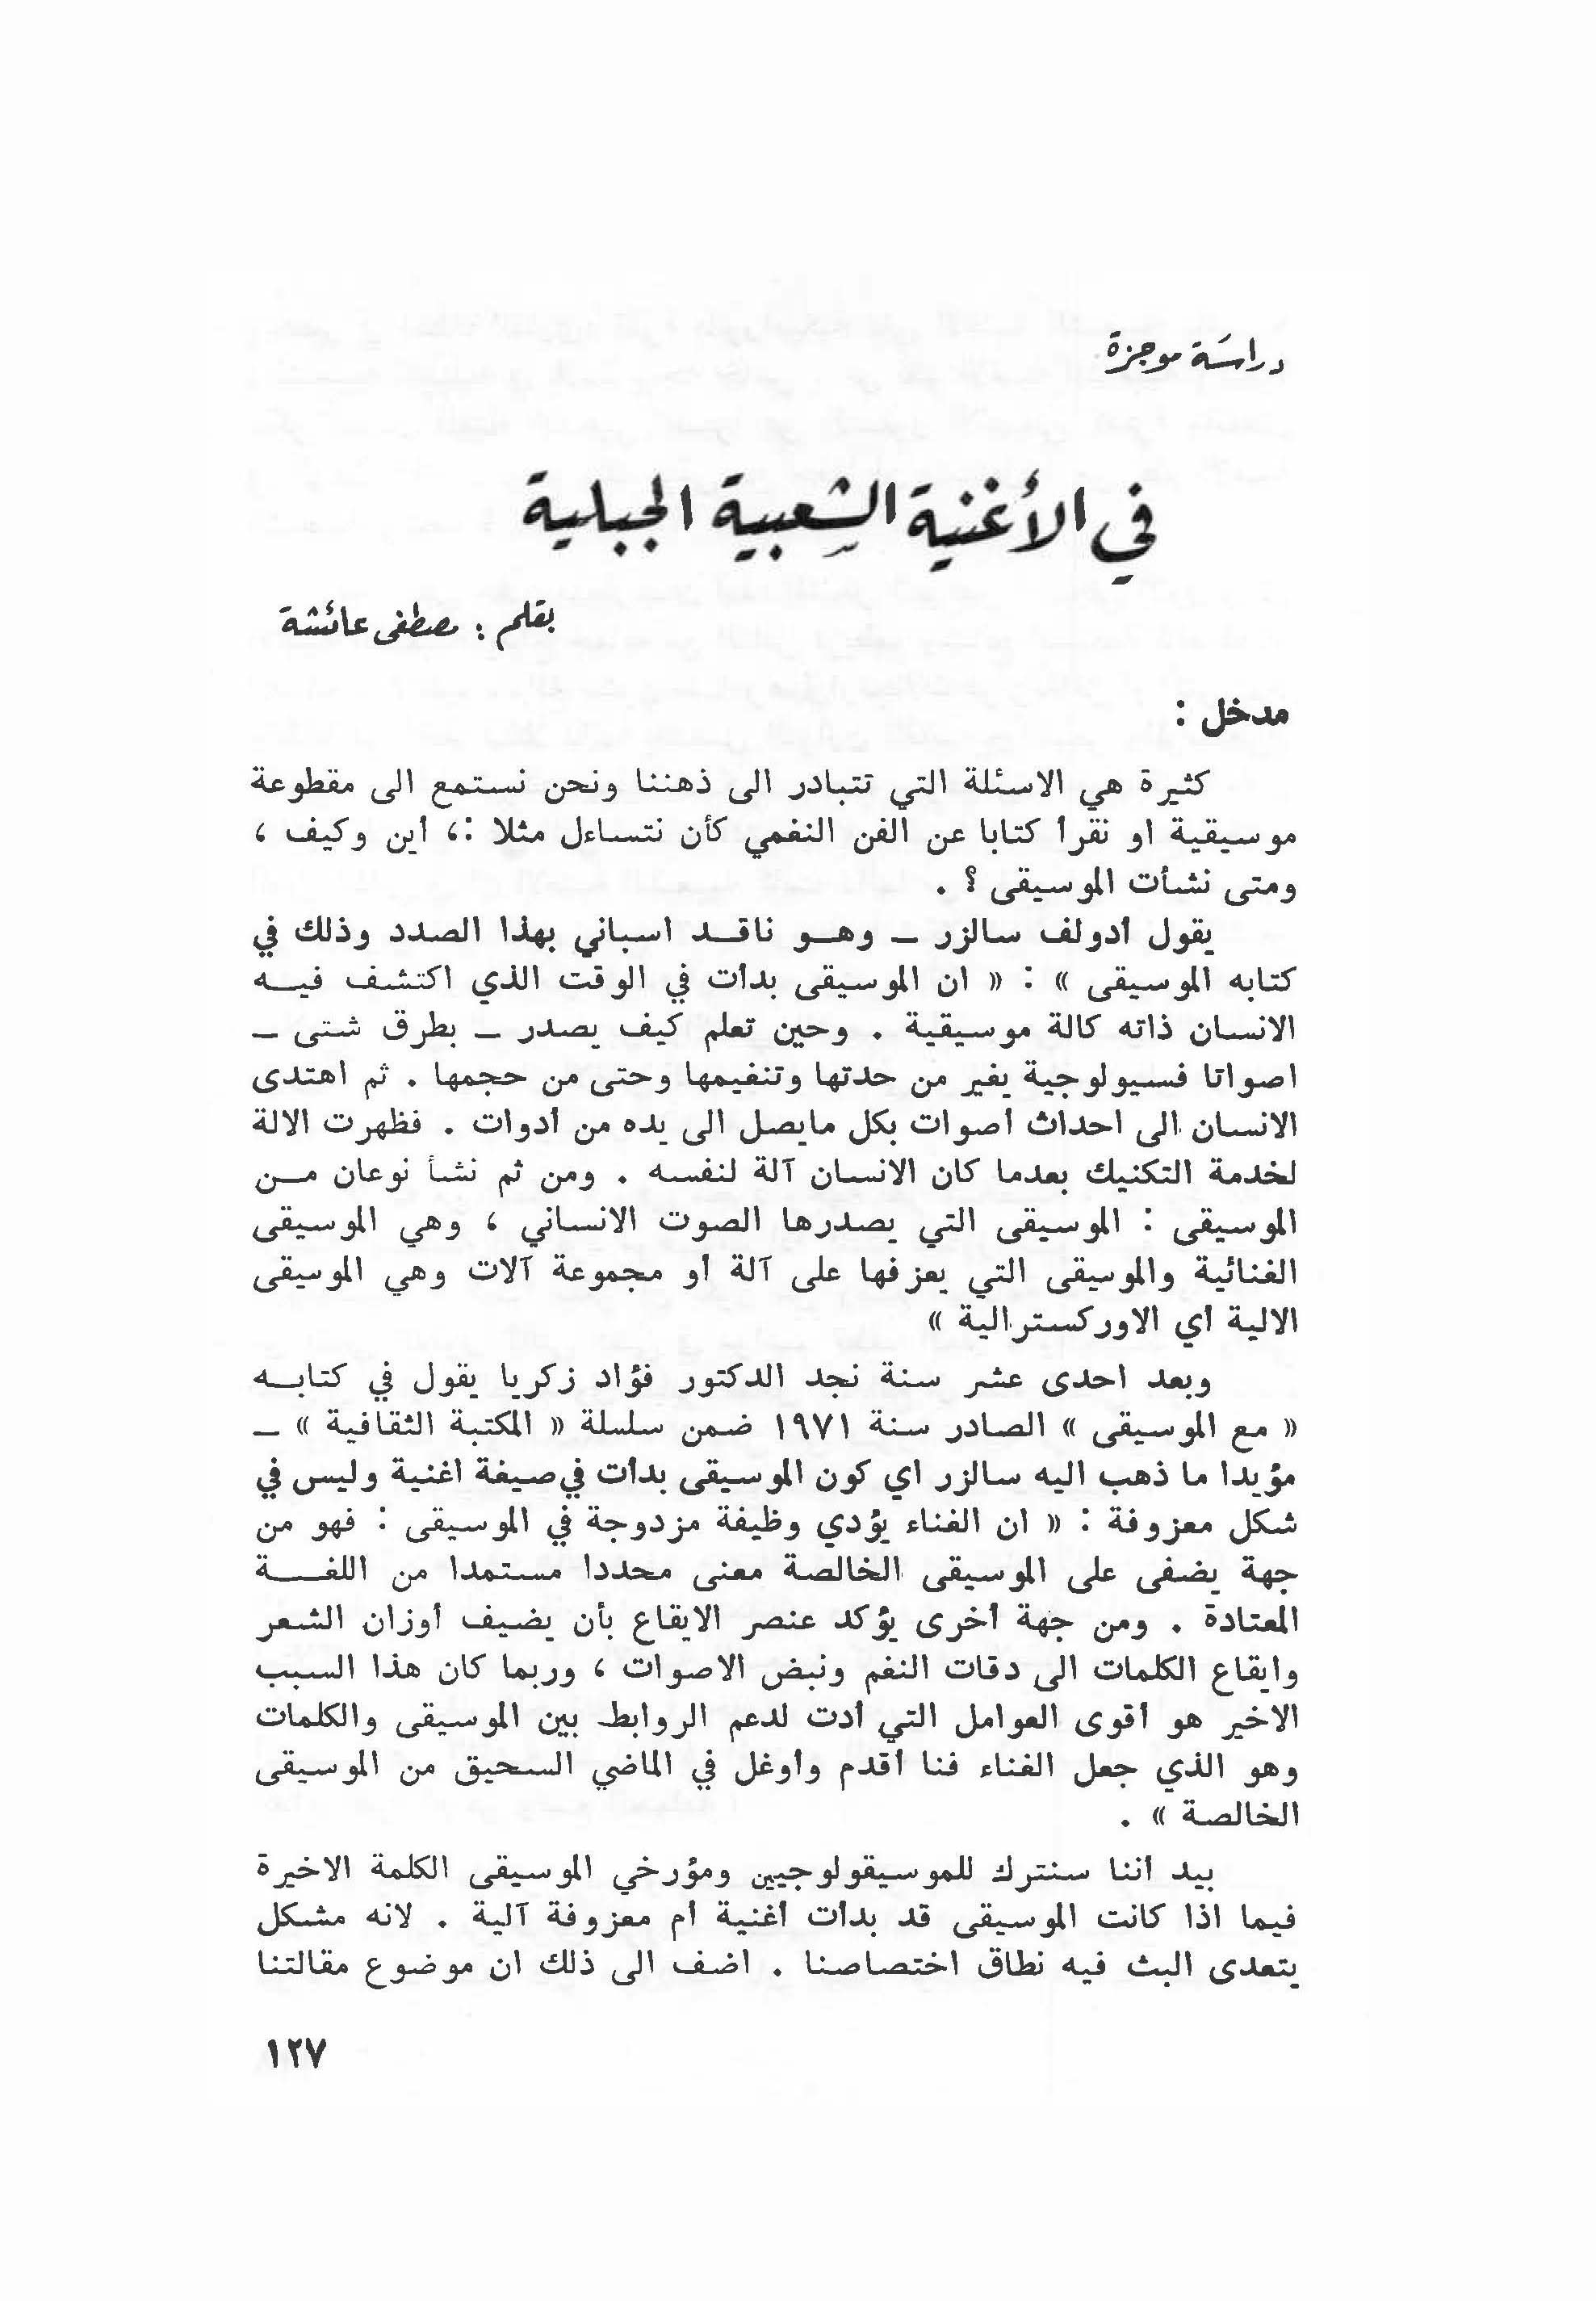 دراسَة موجزة
في الأغنية الشعبية الجبلية
بقلم : مصطفى عائشة
مدخل :
كثيرة هي الاسئلة التي تتبادر الى ذهننا ونحن نستمع الى مقطوعة
موسيقية او نقرأ كتابا عن الفن النغمي كأن نتساءل مثلا :، أين وكيف ،
ومتى نشأت الموسيقى ؟ .
يقول أدولف سالزر — وهـو ناقـد اسباني بهذا الصدد وذلك في
كتابه الموسيقى » : « ان الموسيقى بدأت في الوقت الذي اكتشف فيـه
الانسان ذاته كالة موسيقية . وحين تعلم كيف يصدر — بطرق شتى —
اصواتا فسيولوجية يغير من حدتها وتنغيمها وحتى من حجمها . ثم اهتدى
الانسان الى احداث أصوات بكل مايصل الى يده من أدوات . فظهرت الالة
لخدمة التكنيك بعدما كان الانسان آلة لنفسه . ومن ثم نشأ نوعان مـن
الموسيقى : الموسيقى التي يصدرها الصوت الانساني ، وهي الموسيقى
الغنائية والموسيقى التي يعزفها على آلة أو مجموعة آلات وهي الموسيقى
الالية أي الاوركسترالية »
وبعد احدى عشر سنة نجد الدكتور فؤاد زكريا يقول في كتابـه
« مع الموسيقى » الصادر سنة ١٩٧١ ضمن سلسلة « المكتبة الثقافية » —
مؤيدا ما ذهب اليه سالزر اي كون الموسيقى بدأت في صيغة اغنية وليس في
شكل معزوفة : « ان الغناء يؤدي وظيفة مزدوجة في الموسيقى : فهو من
جهة يضفى على الموسيقى الخالصة معنى محددا مستمدا من اللغـــة
المعتادة . ومن جهة أخرى يؤكد عنصر الايقاع بأن يضيف أوزان الشعر
وايقاع الكلمات الى دقات النغم ونبض الاصوات ، وربما كان هذا السبب
الاخير هو أقوى العوامل التي أدت لدعم الروابط بين الموسيقى والكلمات
وهو الذي جعل الغناء فنا أقدم وأوغل في الماضي السحيق من الموسيقى
الخالصة » .
بيد أننا سنترك للموسيقولوجيين ومؤرخي الموسيقى الكلمة الاخيرة
فيما اذا كانت الموسيقى قد بدأت أغنية أم معزوفة آلية . لانه مشكل
يتعدى البث فيه نطاق اختصاصنا . اضف الى ذلك ان موضوع مقالتنا
١٢٧